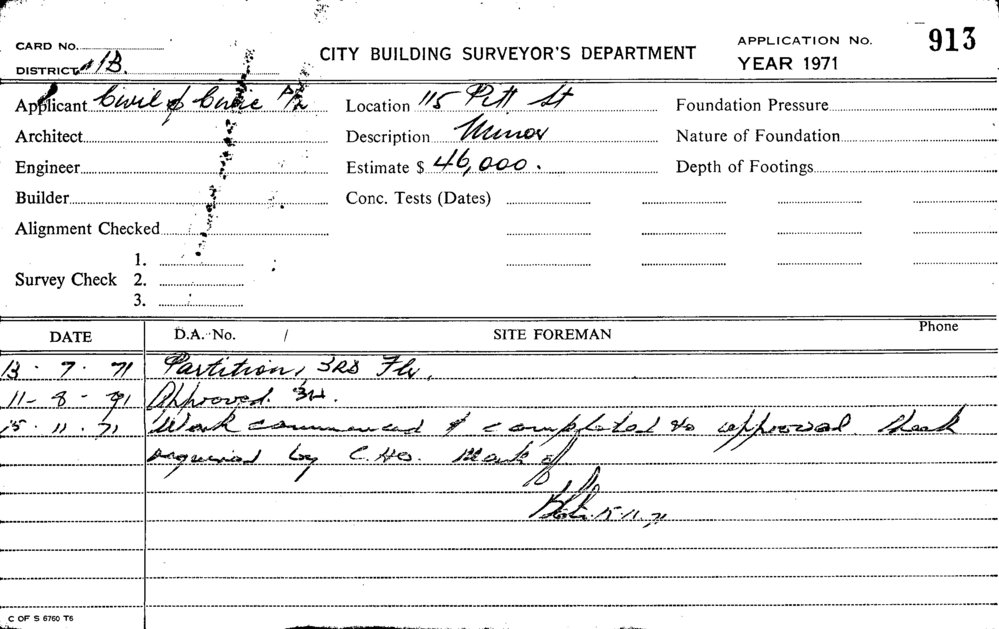 CARD No.
DISTRICT 1B.
CITY BUILDING SURVEYOR'S DEPARTMENT
APPLICATION No. 913
YEAR 1971
Applicant Civil & Civic P/L
Location 115 Pitt St
Foundation Pressure
Architect
Description Minor
Nature of Foundation
Engineer
Estimate $ 46,000.
Depth of Footings
Builder
Conc. Tests (Dates)
Alignment Checked
Survey Check 1.
2.
3.
DATE D.A. No. / SITE FOREMAN Phone
13 . 7 . 71 Partition, 3RD Flr.
11 - 8 - 71 Approved.
15 . 11 . 71 Work commenced & completed to approval. Check
required by C.H.O. Mark off
15.11.71
C OF S 6760 T6